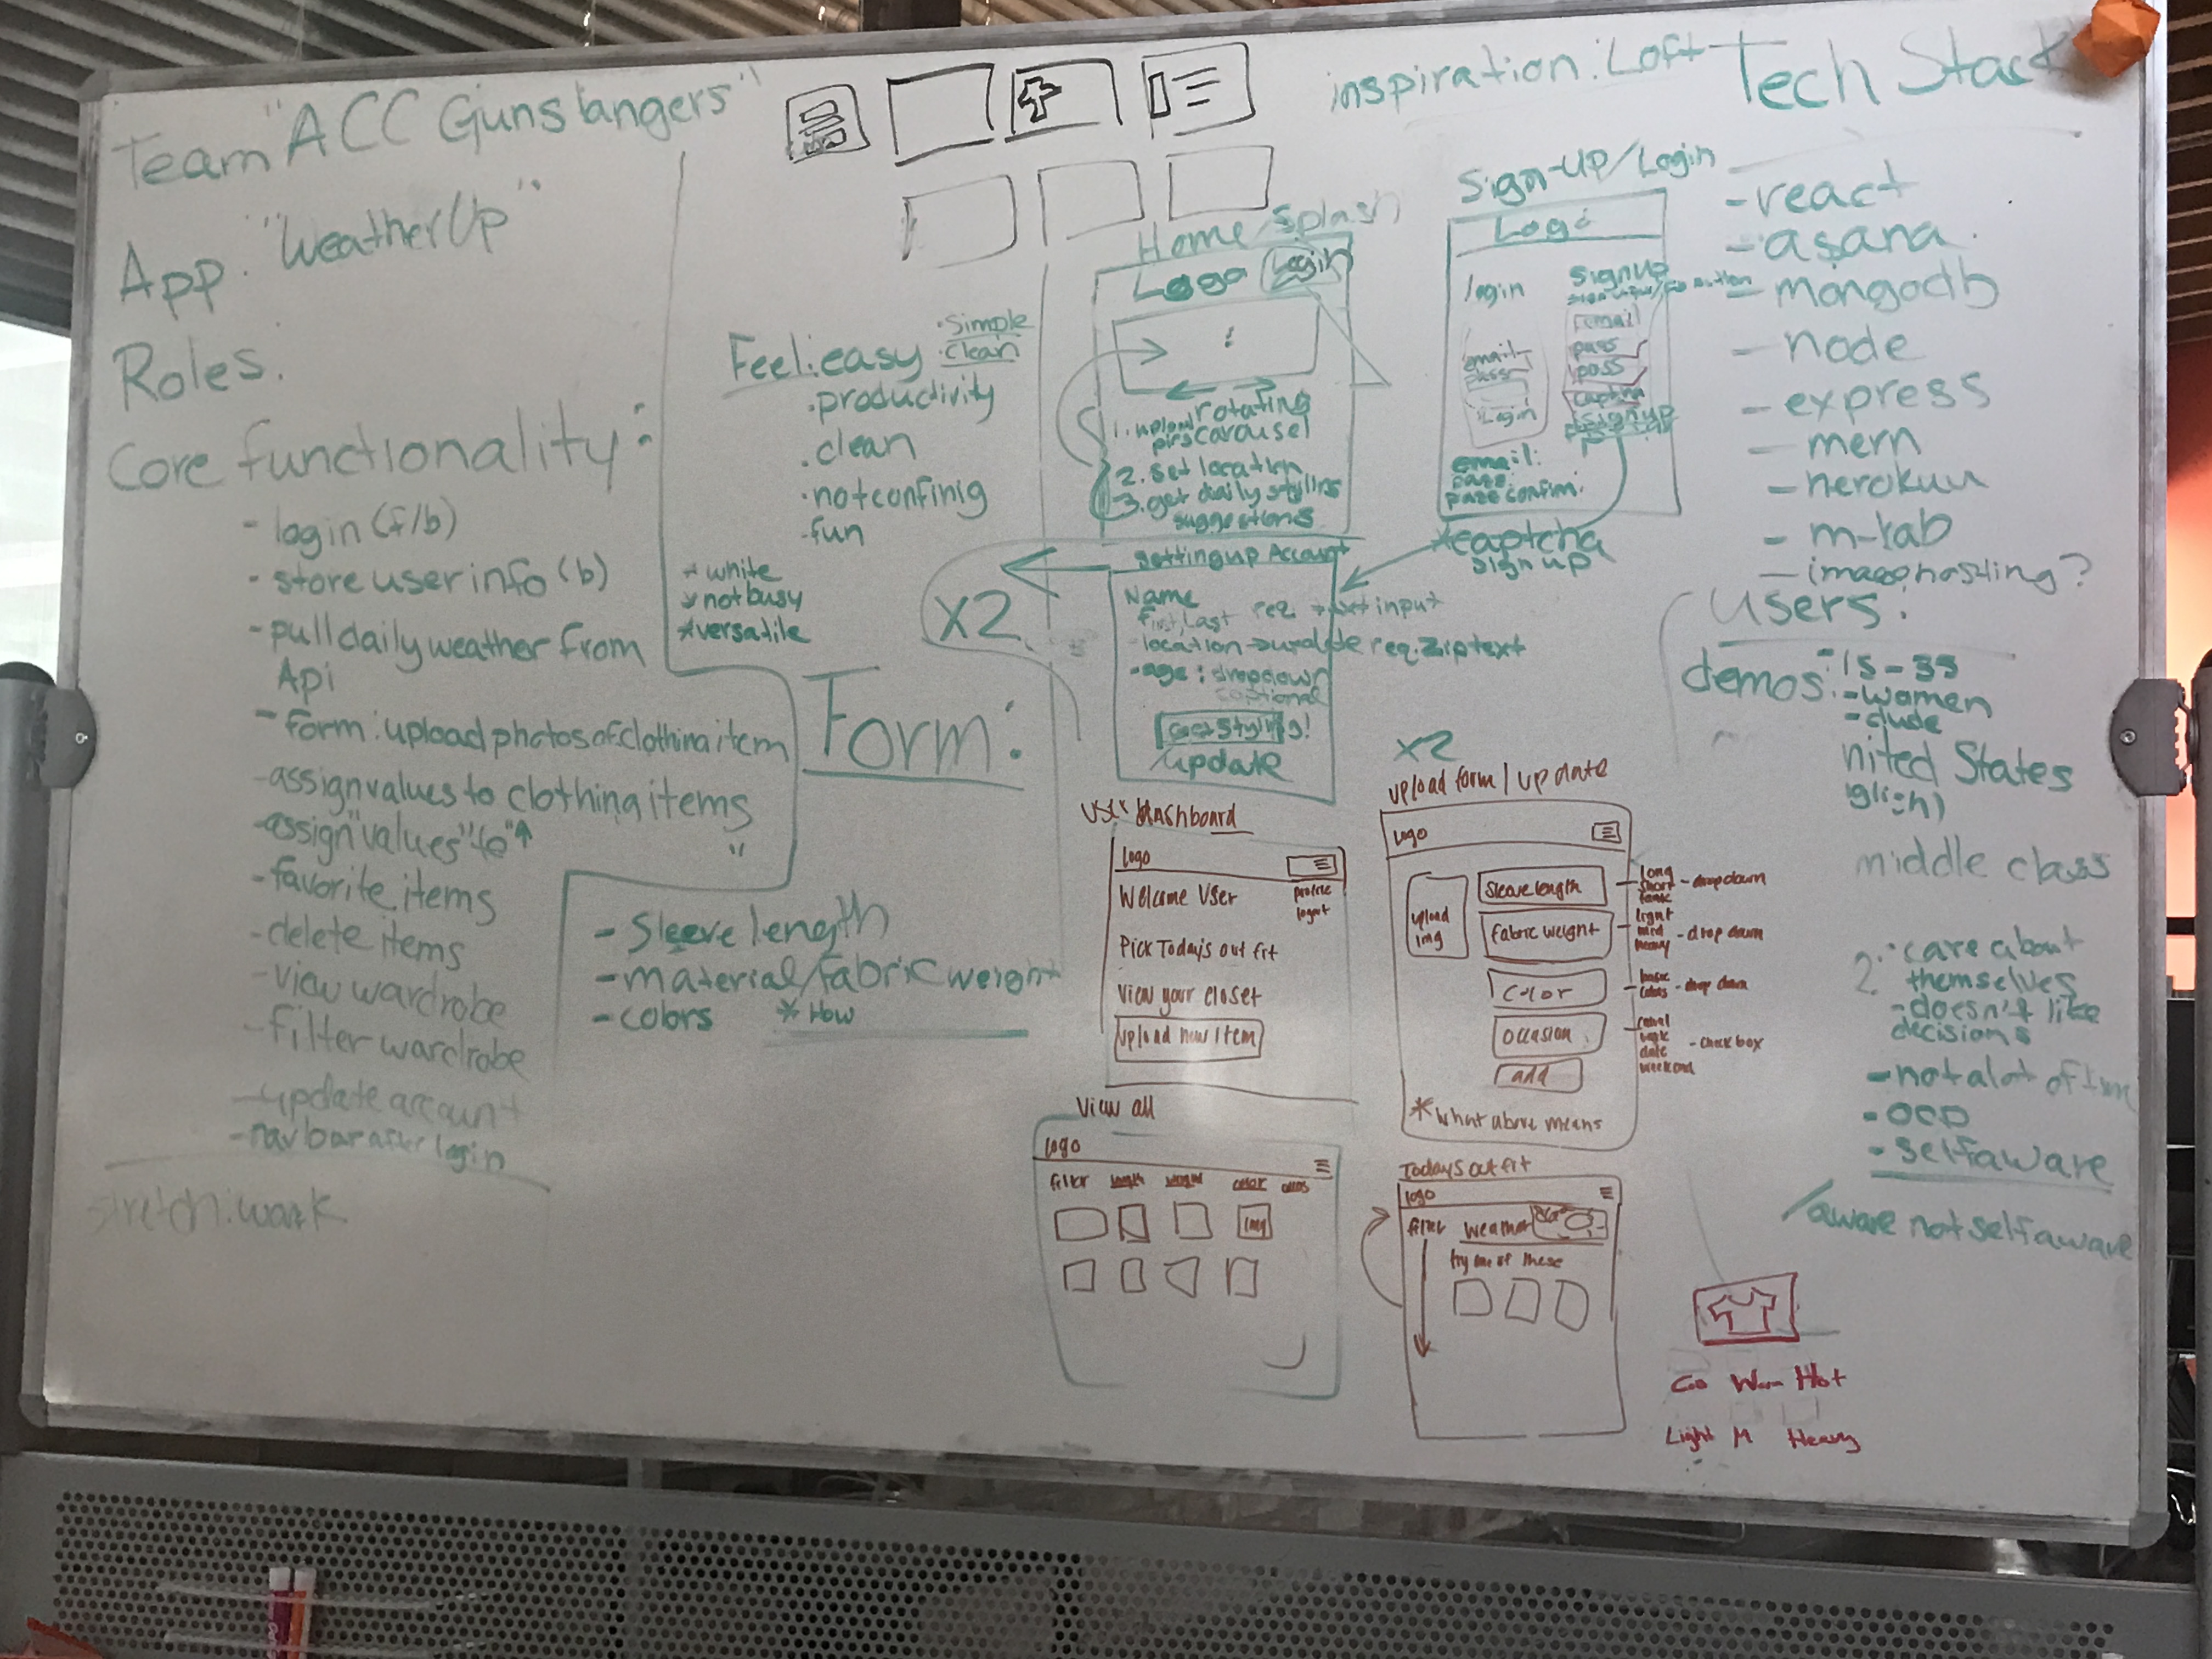 Team "ACC Gunslangers"
App. "WeatherUp"
Roles.
Core functionality:
- login (f/b)
- store user info (b)
- pull daily weather from
Api
- form: upload photos of clothing item
- assign values to clothing items
- assign "values" to "
- favorite items
- delete items
- view wardrobe
- filter wardrobe
- update account
- navbar after login
stretch: work
Feel: easy
· simple
· clean
· productivity
. clean
· not confinig
· fun
* white
* not busy
* versatile
Form:
- Sleeve length
- material/fabric weight
- colors * How
inspiration: Loft
Home/Splash
Logo Login
rotating
carousel
1. upload
pics
2. set location
3. get daily styling
suggestions
Sign-up/Login
Logo
login
email
pass
Login
Signup
email
pass
pass
captcha
signup
email:
pass:
pass confim.
*captcha
sign up
x2
setting up Account
Name
First, Last req text input
- location req. Zip text
- age: dropdown
optional
Get Styling!
/update
User dashboard
logo
profile
logout
Welcome User
Pick Todays out fit
View your closet
upload new item
x2
upload form / update
logo
upload
img
sleeve length
long
short
tank
- drop down
fabric weight
light
mid
heavy
- drop down
color
basic
colors
- drop down
occasion
casual
work
date
weekend
- check box
add
* what above means
View all
logo
filter length weight color
img
Todays out fit
logo
filter weather
try one of these
Tech Stack
- react
- asana
- mongodb
- node
- express
- mern
- herokuu
- m-lab
- image hosting?
users:
demos: - 15 - 35
- women
- dude
nited States
glish)
middle class
? · care about
themselves
- doesn't like
decisions
- not alot of time
- OCD
- self aware
/aware not self aware
Warm Hot
Light M Heavy